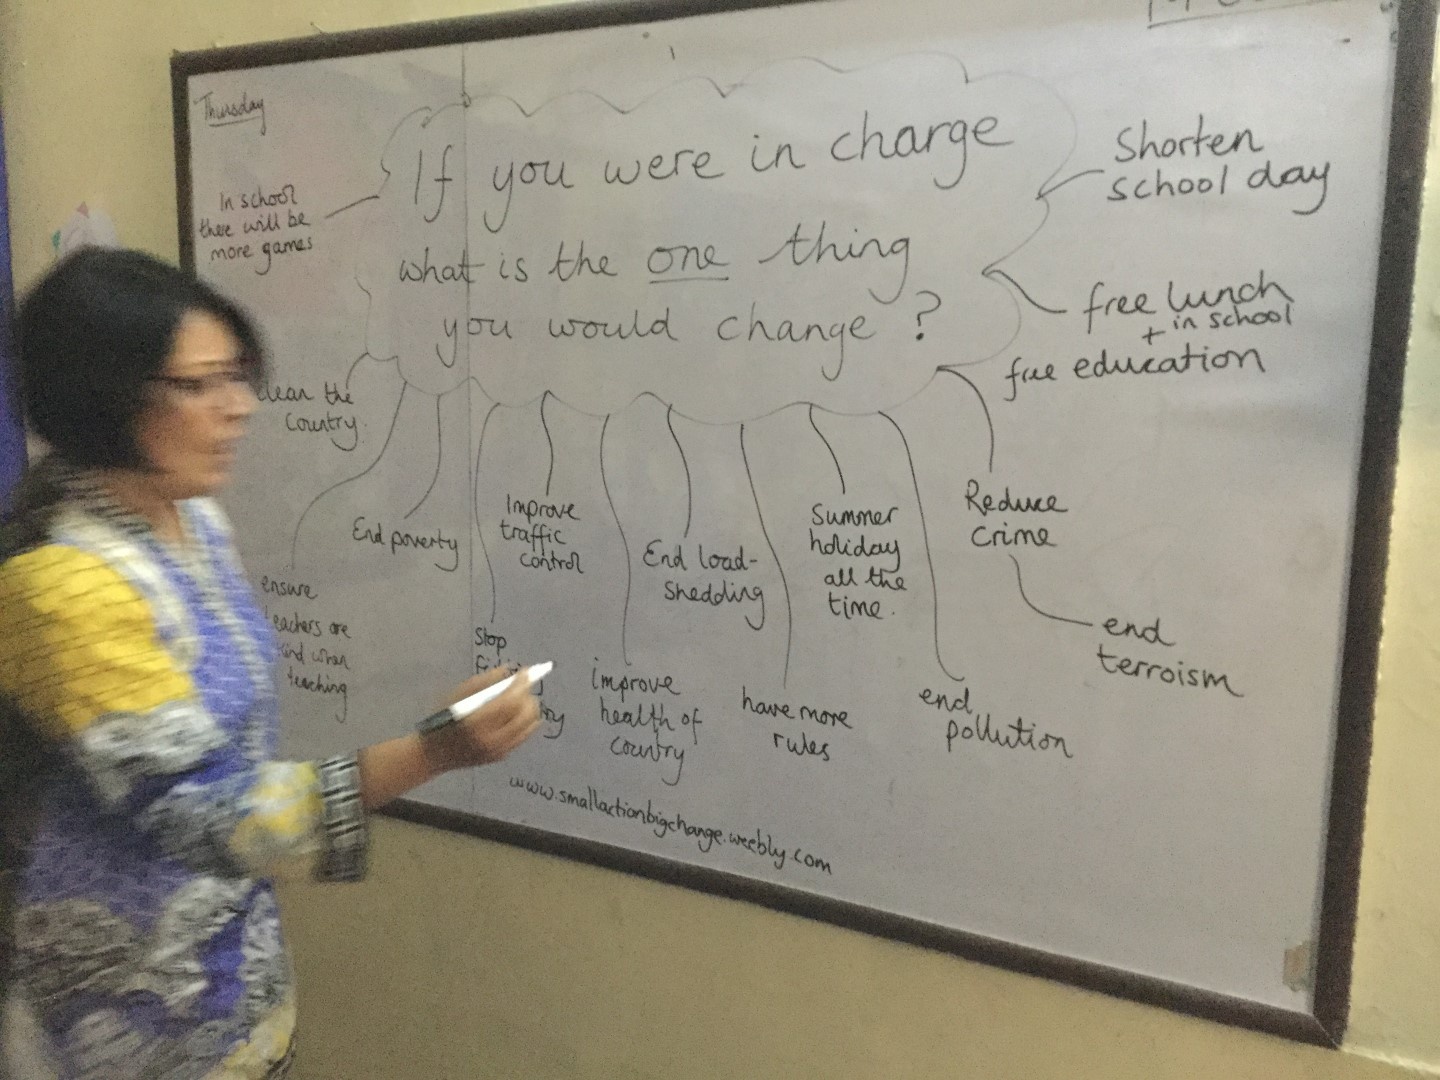 Thursday
If you were in charge
what is the one thing
you would change ?
In school
there will be
more games
Shorten
school day
free lunch
+ in school
free education
Reduce
crime
end
terroism
end
pollution
Summer
holiday
all the
time.
have more
rules
End load-
Shedding
improve
health of
country
Improve
traffic
control
Stop
End poverty
ensure
teachers are
kind when
teaching
clean the
country.
www.smallactionbigchange.weebly.com